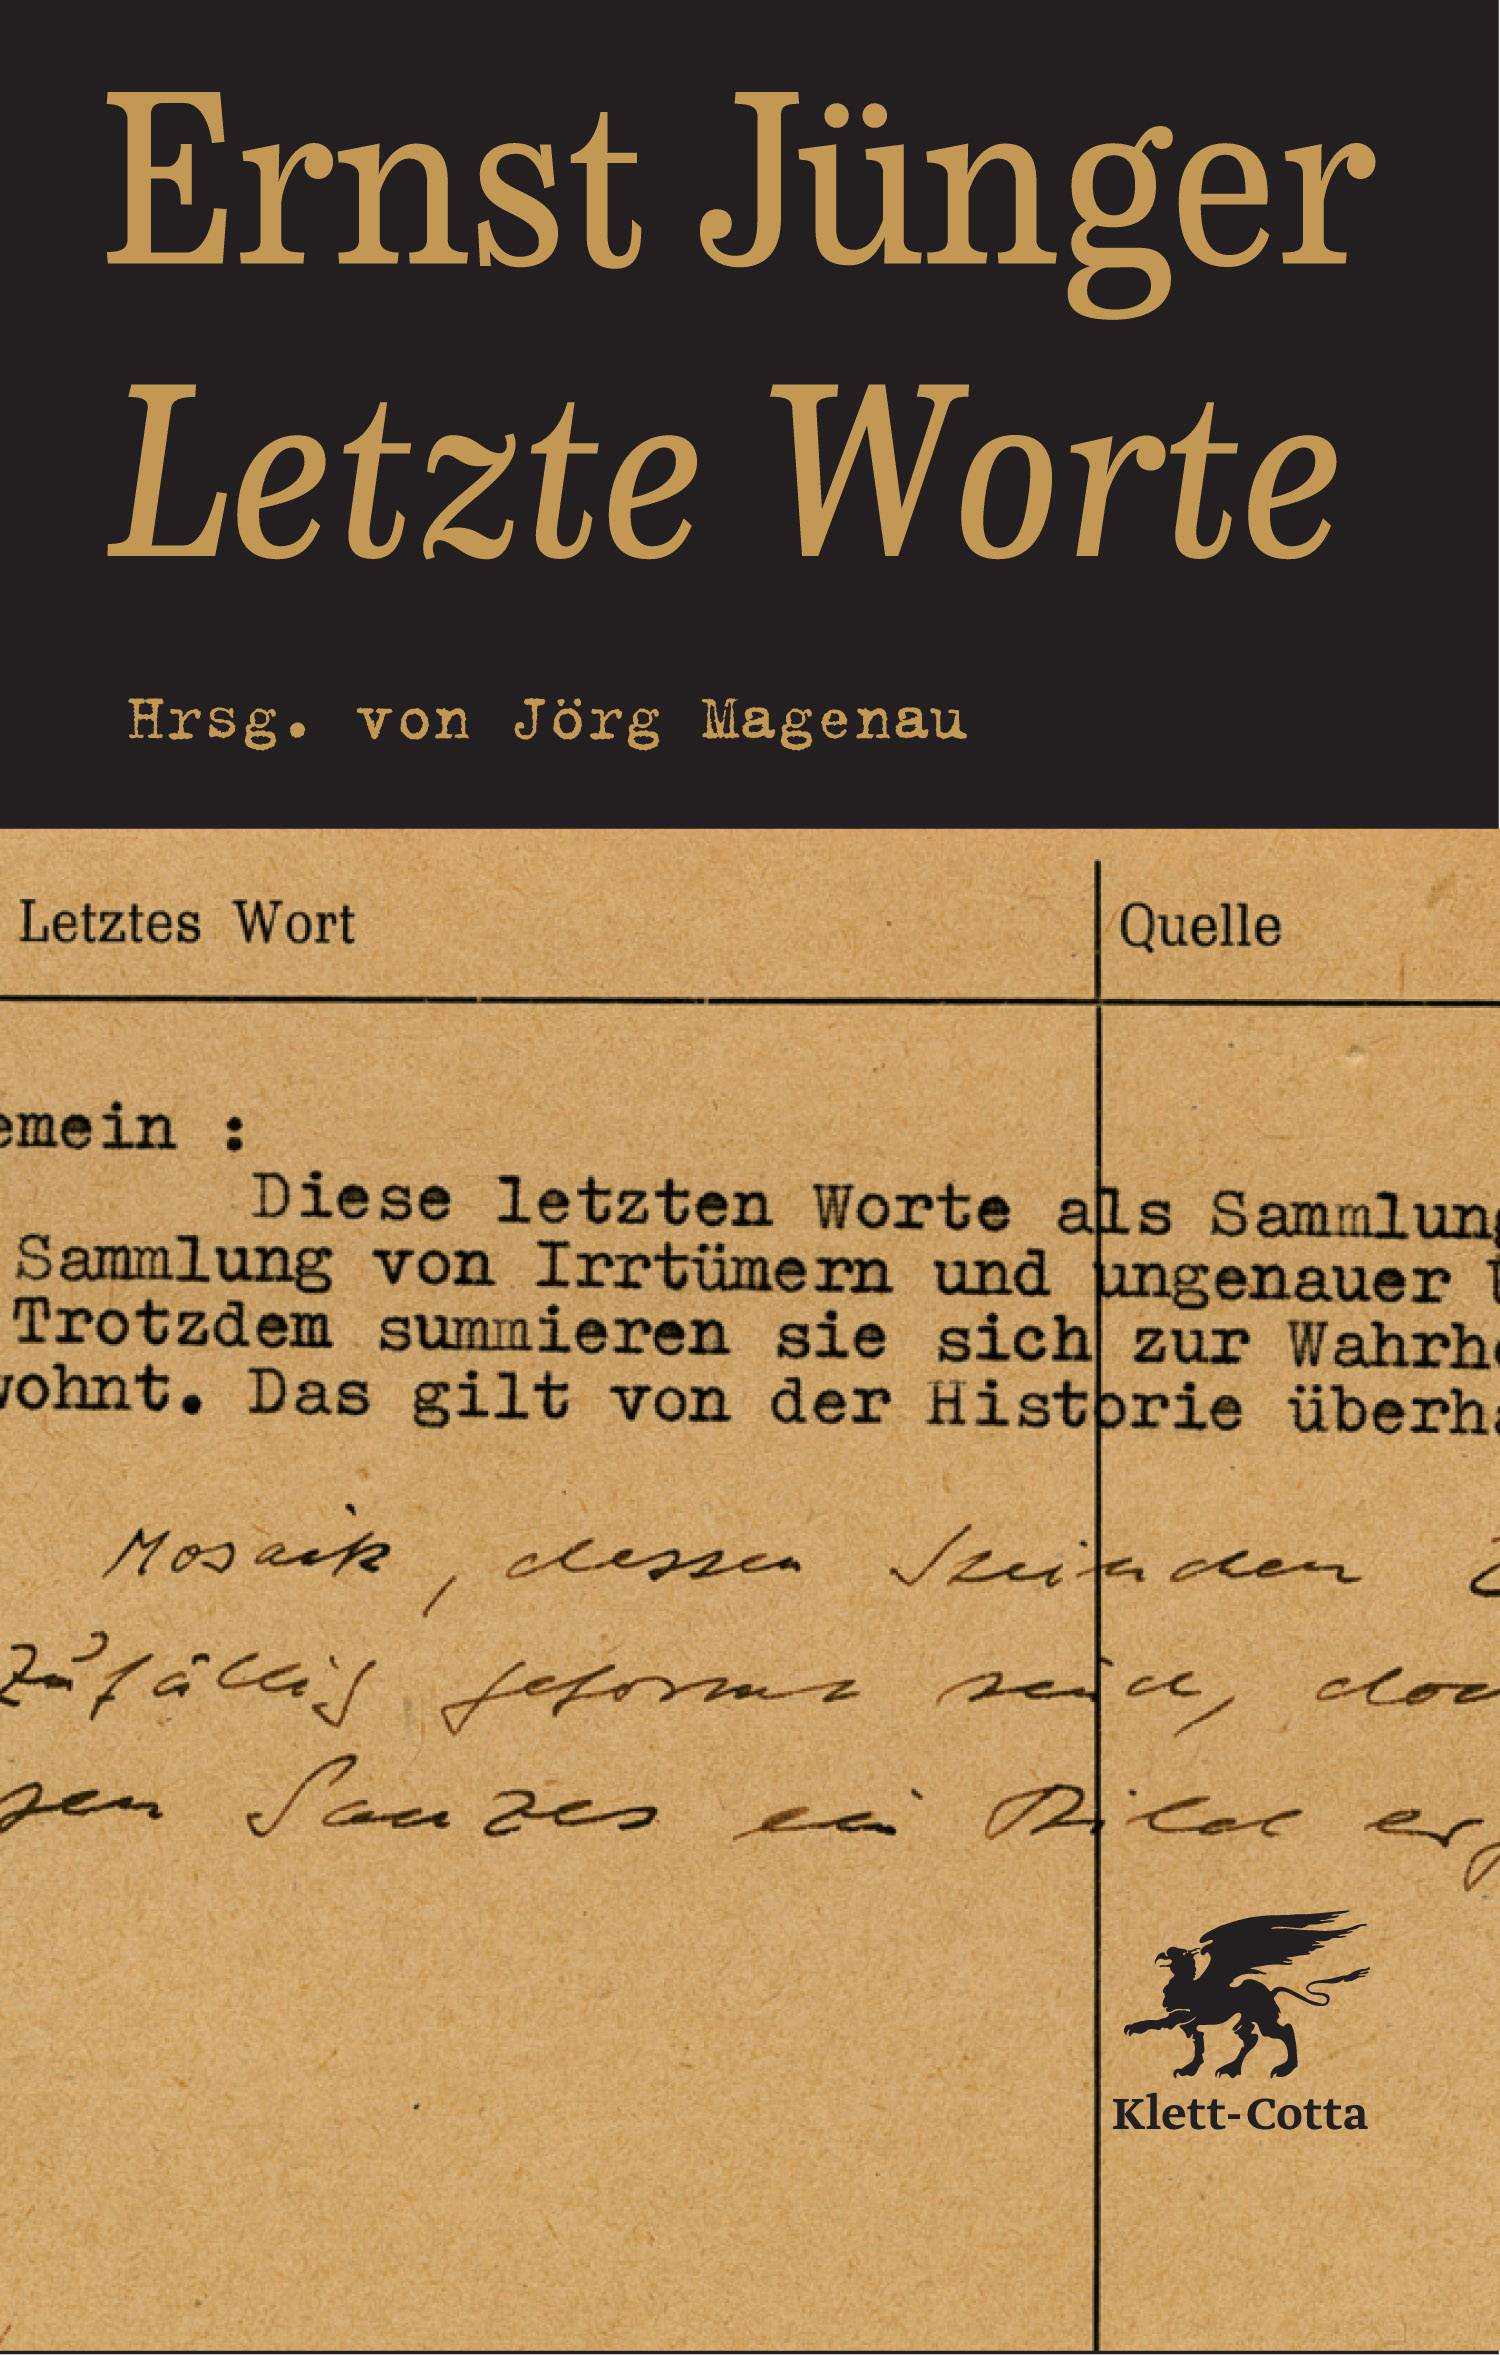 Ernst Jünger
Letzte Worte
Hrsg. von Jörg Magenau
Letztes Wort
Quelle
emein :
Diese letzten Worte als Sammlung
Sammlung von Irrtümern und ungenauer
Trotzdem summieren sie sich zur Wahrhe
wohnt. Das gilt von der Historie überha
Mosaik, dessen
zufällig geformt sind, doch
sen Ganzes ein Bild erg
Klett-Cotta